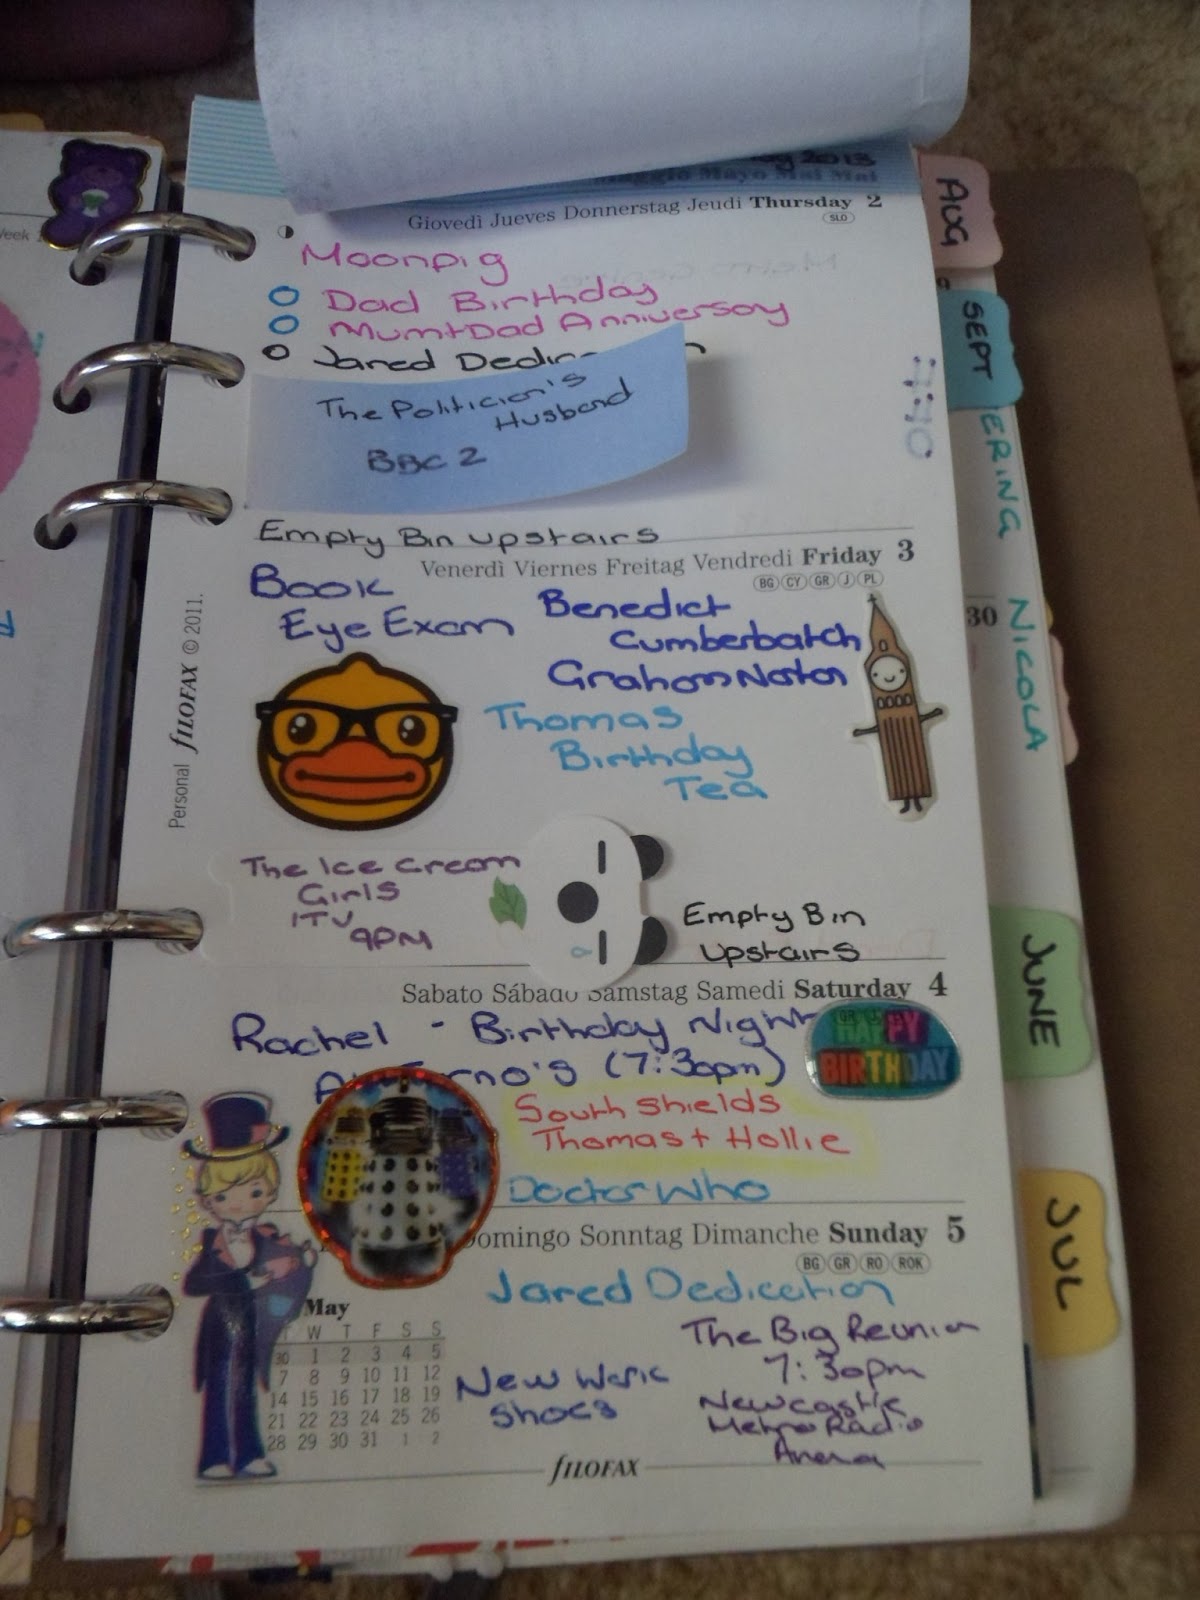 2013
Maggio Mayo Mai Mai
Giovedì Jueves Donnerstag Jeudi Thursday 2
SLO
Moonpig
Dad Birthday
Mum+Dad Anniversary
Jared
The Politician's
Husband
BBC 2
Empty Bin upstairs
Venerdì Viernes Freitag Vendredi Friday 3
BG CY GR J PL
Book
Eye Exam
Benedict
Cumberbatch
Graham Norton
Thomas
Birthday
Tea
The Ice Cream
Girls
ITV
9PM
Empty Bin
Upstairs
Sabato Sábado Samstag Samedi Saturday 4
Rachel - Birthday Night
(7:30pm)
HAPPY
BIRTHDAY
South Shields
Thomas + Hollie
Doctor Who
Domingo Sonntag Dimanche Sunday 5
BG GR RO ROK
Jared Dedication
The Big Reunion
7:30pm
Newcastle
Metro Radio
Arena
New Work
Shoes
May
T W T F S S
30 1 2 3 4 5
7 8 9 10 11 12
14 15 16 17 18 19
21 22 23 24 25 26
28 29 30 31 1 2
fILOFAX
Personal fILOFAX © 2011.
AUG
SEPT
ERING
30
NICOLA
JUNE
JUL